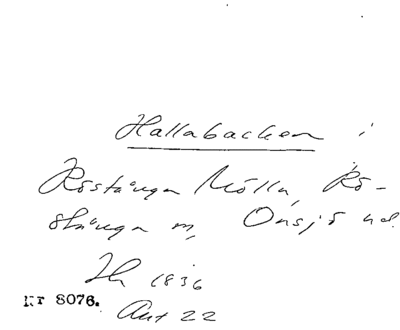 Hallabacken i
Röstånga Mölla, Rö-
stånga sn, Onsjö hd.
1836
Nr 8076.
Akt 22